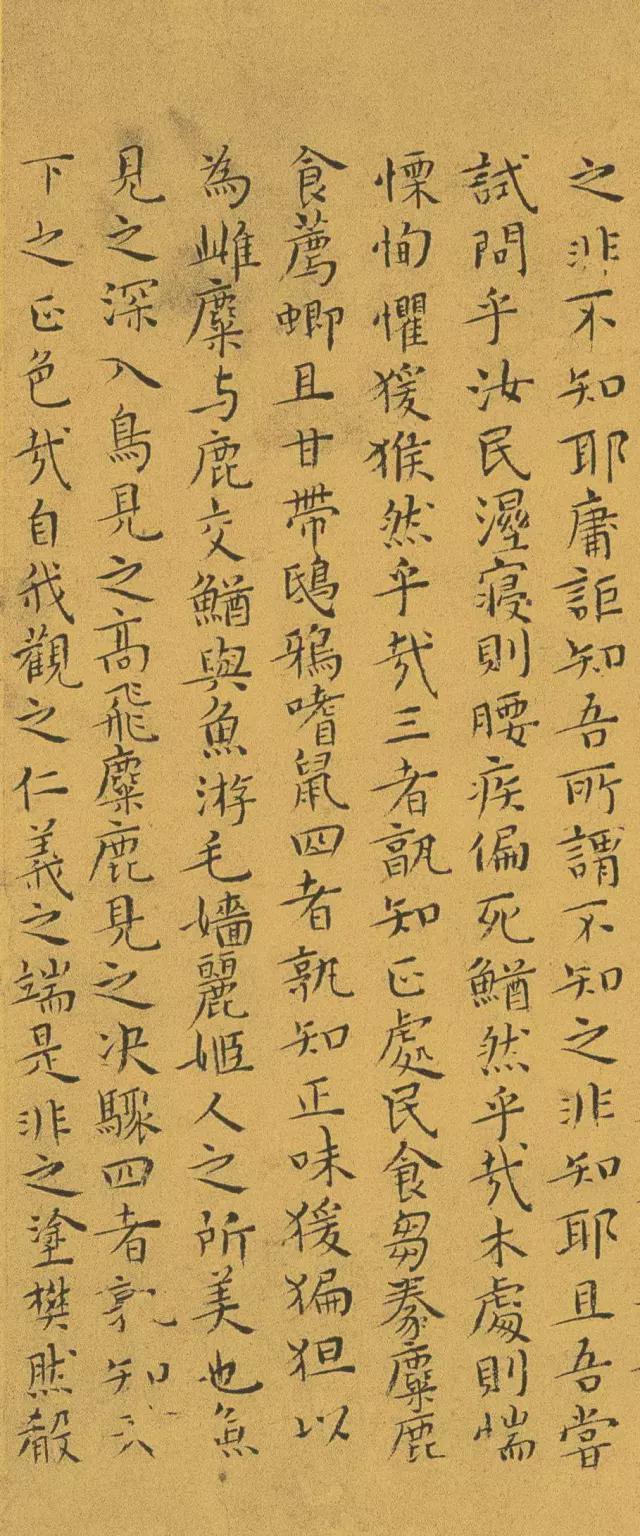 之非不知耶庸詎知吾所謂不知之非知耶且吾嘗
試問乎汝民溼寢則腰疾偏死鰌然乎哉木處則惴
慄恂懼猨猴然乎哉三者孰知正處民食芻豢麋鹿
食薦蝍且甘帶鴟鴉嗜鼠四者孰知正味猨猵狙以
為雌麋与鹿交鰌與魚游毛嬙麗姬人之所美也魚
見之深入鳥見之高飛麋鹿見之决驟四者孰知天
下之正色哉自我觀之仁義之端是非之塗樊然殽